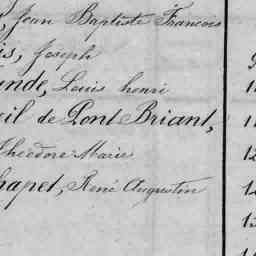 , Jean Baptiste Francois
is, Joseph
ande, Louis henri
uil de Pont Briant,
Théodore Marie
hapet, René Augustin